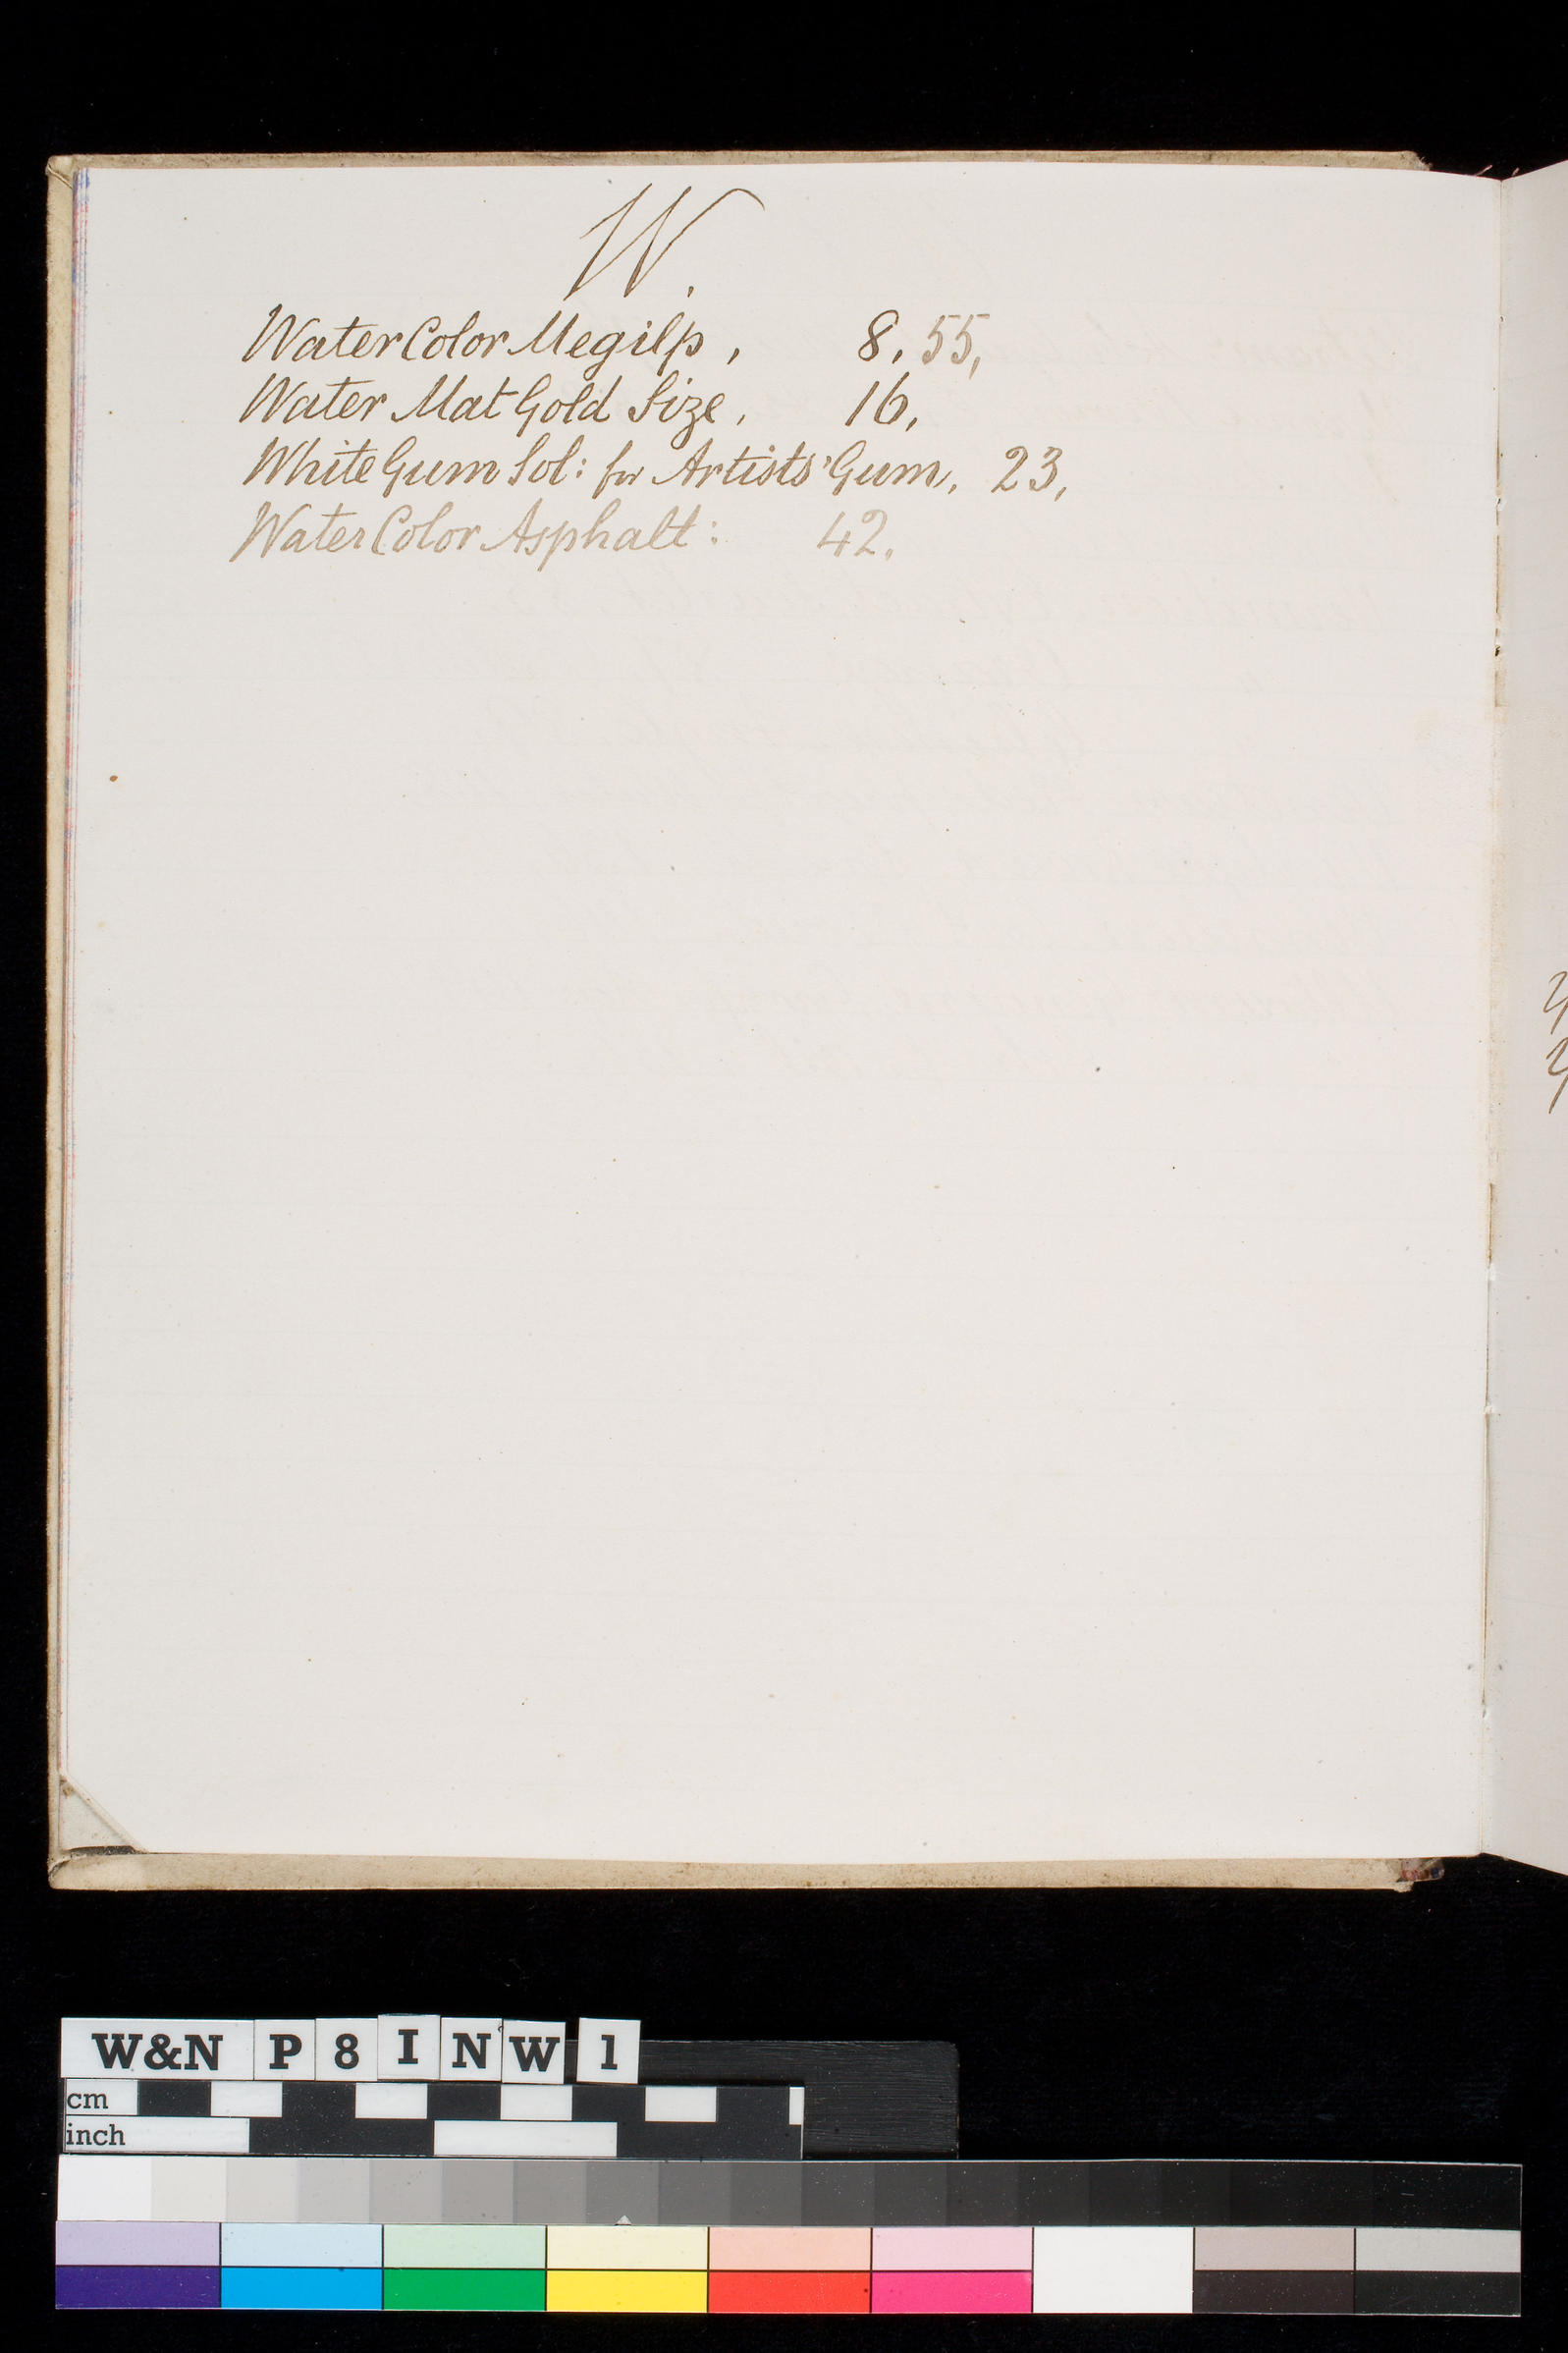 W.
Water Color Megilp, 8, 55,
Water Mat Gold Size, 16,
White Gum Sol: for Artists' Gum, 23,
Water Color Asphalt: 42.
W&N P 8 I N W 1
cm
inch